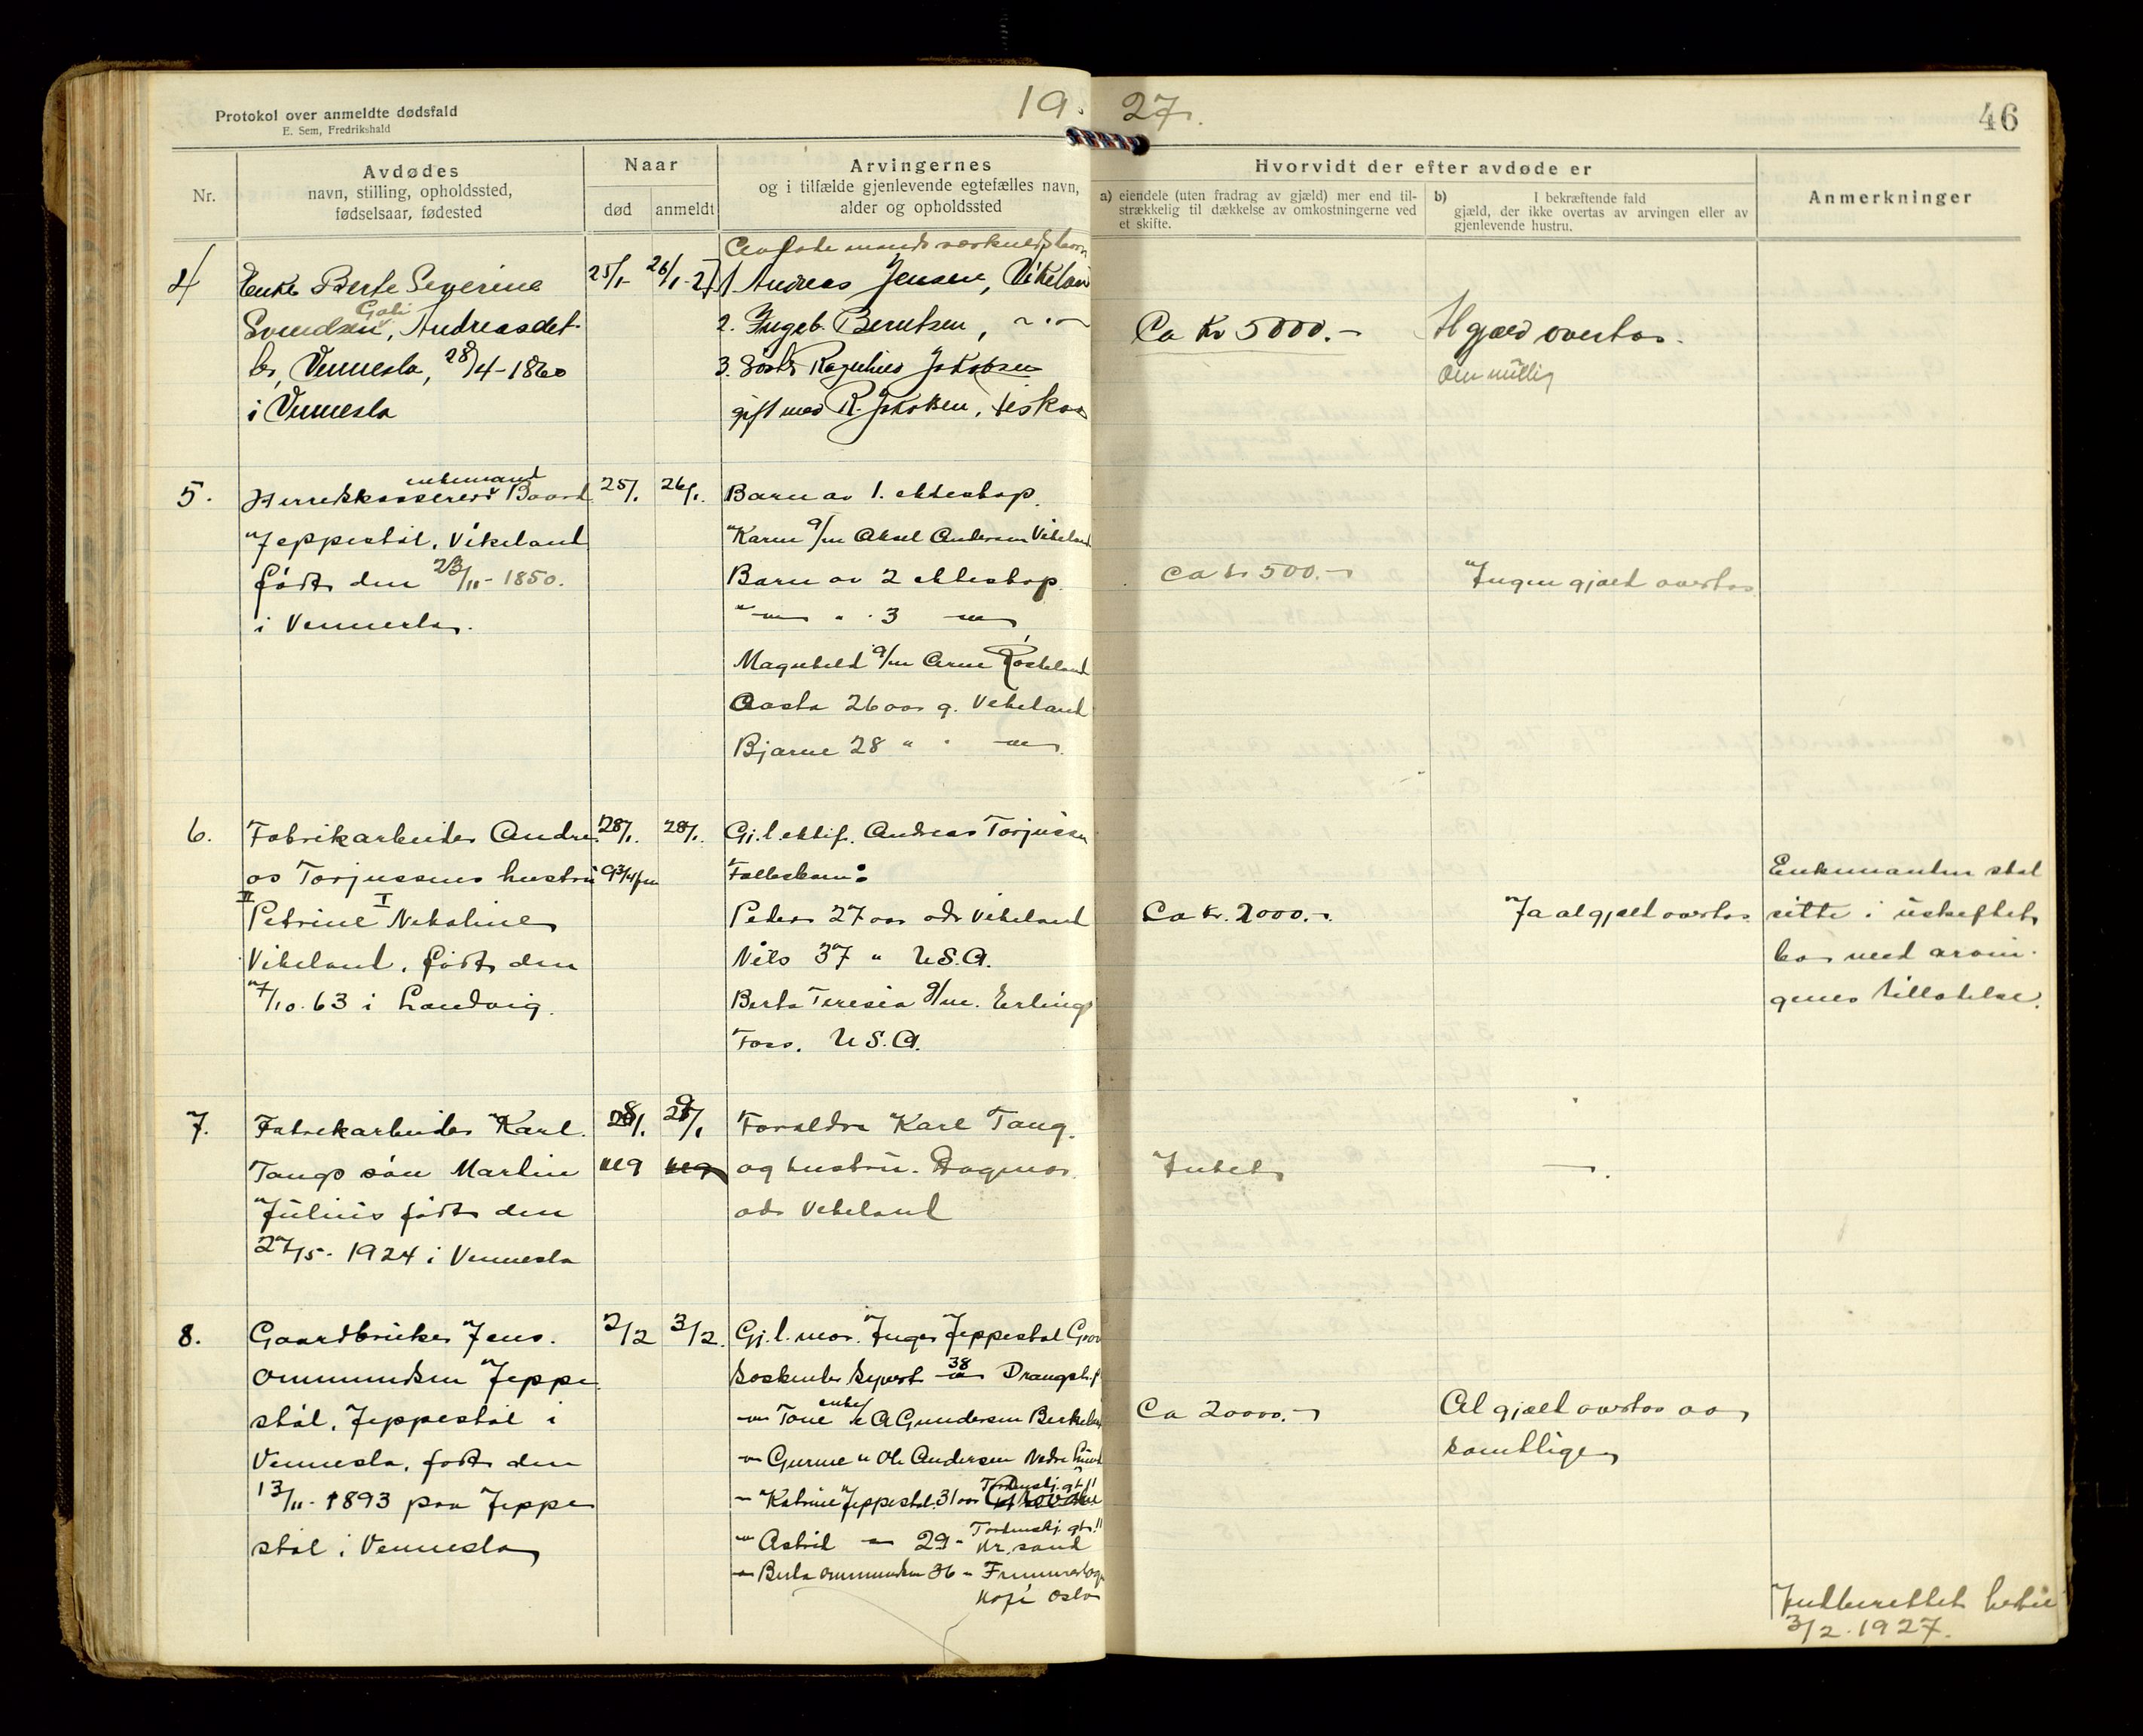 Protokol over anmeldte dødsfald
E. Sem, Fredrikshald
19 27.
46
Nr.
Avdødes
navn, stilling, opholdssted,
fødselsaar, fødested
Naar
død
anmeldt
Arvingernes
og i tilfælde gjenlevende egtefælles navn,
alder og opholdssted
Hvorvidt der efter avdøde er
a) eiendele (uten fradrag av gjæld) mer end til-
strækkelig til dækkelse av omkostningerne ved
et skifte.
b) I bekræftende fald
gjæld, der ikke overtas av arvingen eller av
gjenlevende hustru.
Anmerkninger
4
Enke Berte Severine
Svendsen, Andreasdet-
ter, Vennesla, 28/4-1860
i Vennesla
25/1-
26/1-27
1 Andreas Jensen, Vikeland
2. Ingeb. Berntsen, -"-
3. Jakobsen
gift med R. Jakobsen,
Ca Kr 5000.-
Al gjæld overtas.
5.
Herredskasserer enkemand Baard
Jeppestøl, Vikeland
født den 23/11-1850.
i Vennesla.
25/1
26/1.
Barn av 1. ekteskap.
Karen g/m Aksel Andersen Vikeland
Barn av 2 ekteskap
-"- " 3 -"-
Magnhild g/m Arne Røskeland
Aasta 26 aar g. Vikeland
Bjarne 28 " " -"-
Ca kr 500.-
Ingen gjæld overtas
6.
Fabrikarbeider Andre-
as Torjussens hustru
II I
Petrine Nikoline
Vikeland, født den
7/10.63 i Landvig.
28/1.
9 3/4 fm
28/1.
Gj.l. ektef. Andreas Torjussen
Fellesbarn:
Peder 27 aar adr Vikeland
Nils 37 " U.S.A.
Berta Teresia g/m. Erling
Foss. U.S.A.
Ca kr. 2000.-
Ja al gjæld overtas
Enkemanden skal
sitte i uskiftet
bo med arvin-
genes tillatelse.
7.
Fabrikarbeider Karl
Tangs søn Martin
Julius født den
27/5-1924 i Vennesla
28/1.
kl 9
29/1
kl 9
Foreldre Karl Tang.
og hustru. Dagmar.
adr Vikeland
Intet
-.
8.
Gaardbruker Jens
Ommundsen Jeppe
støl, Jeppestøl i
Vennesla, født den
13/11-1893 paa Jeppe
støl i Vennesla
2/2
3/2.
Gj.l. mor. Inger Jeppestøl
Søskende Syvert 38 -"-
-"- Tone enke e/ A Gundersen
-"- Gurine " Ole Andersen
-"- Katrine Jeppestøl 31 aar Tordenskj. gt 11
-"- Astrid -"- 29 - Tordenskj. gt. 11 Kr.sand
-"- Berta Ommundsen 36 -
Oslo
Ca 20000.-
Al gjæld overtas av
samtlige
3/2.1927.